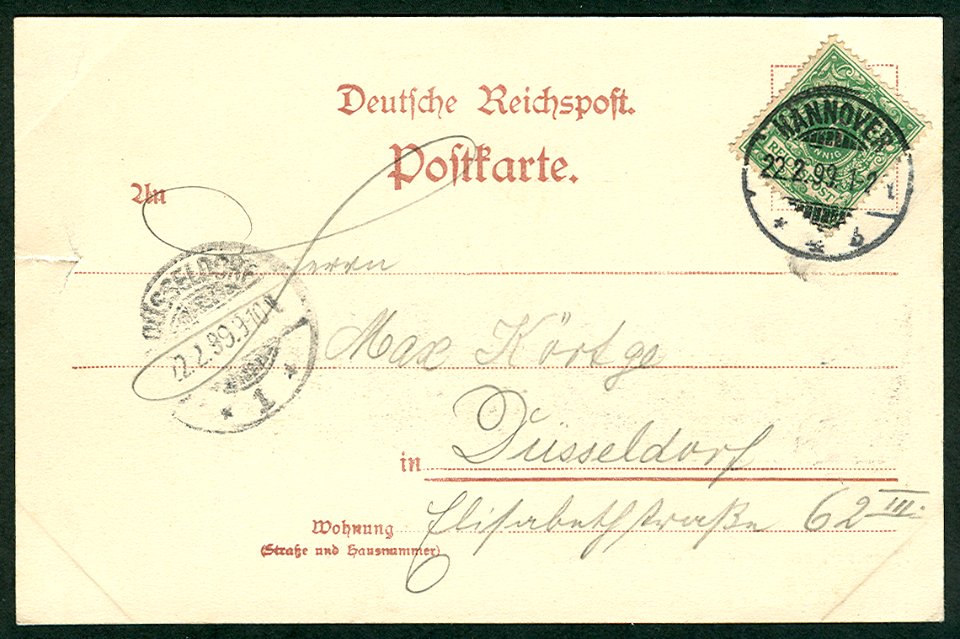 Deutsche Reichspost.
Postkarte.
An
HANNOVER
22.2.99.1-2
b
DÜSSELDORF
22.2.99.9-10N
1
Herrn
Max Körtge
in Düsseldorf
Wohnung Elisabethstraße 62 III.
(Straße und Hausnummer)